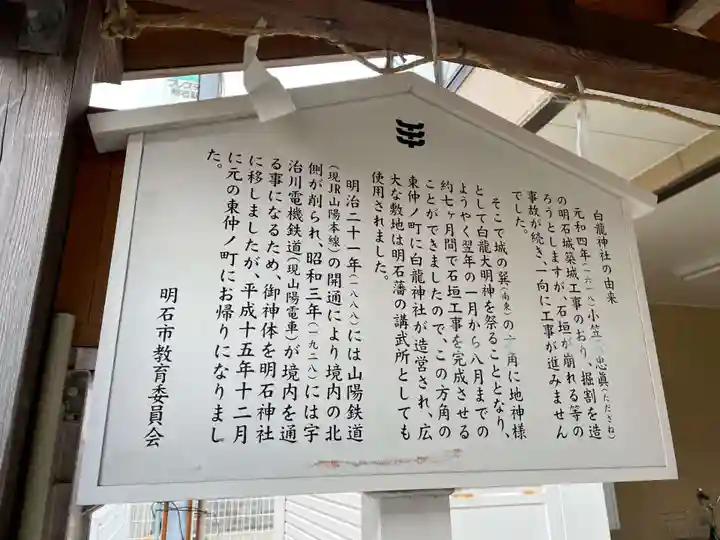 白龍神社の由来
元和四年(一六一八)小笠 忠眞(ただざね)
の明石城築城工事のおり、掘割を造
ろうとしますが、石垣が崩れる等の
事故が続き、一向に工事が進みません
でした。
そこで城の巽(南東)の 角に地神様
として白龍大明神を祭ることとなり、
ようやく翌年の一月から八月までの
約七ヶ月間で石垣工事を完成させる
ことができましたので、この方角の
東仲ノ町に白龍神社が造営され、広
大な敷地は明石藩の講武所としても
使用されました。
明治二十一年(一八八八)には山陽鉄道
(現JR山陽本線)の開通により境内の北
側が削られ、昭和三年(一九二八)には宇
治川電機鉄道(現山陽電車)が境内を通
る事になるため、御神体を明石神社
に移しましたが、平成十五年十二月
に元の東仲ノ町にお帰りになりまし
た。
明石市教育委員会